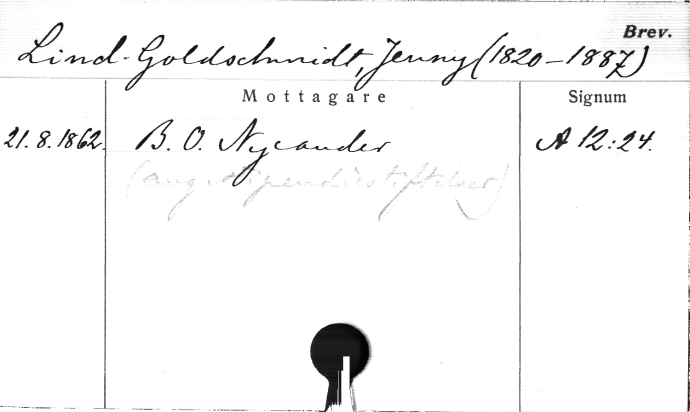 Brev.
Lind-Goldschmidt, Jenny (1820–1887)
Mottagare Signum
21.8.1862. B. O. Nycander A 12:24.
(ang. stipendiestiftelser)